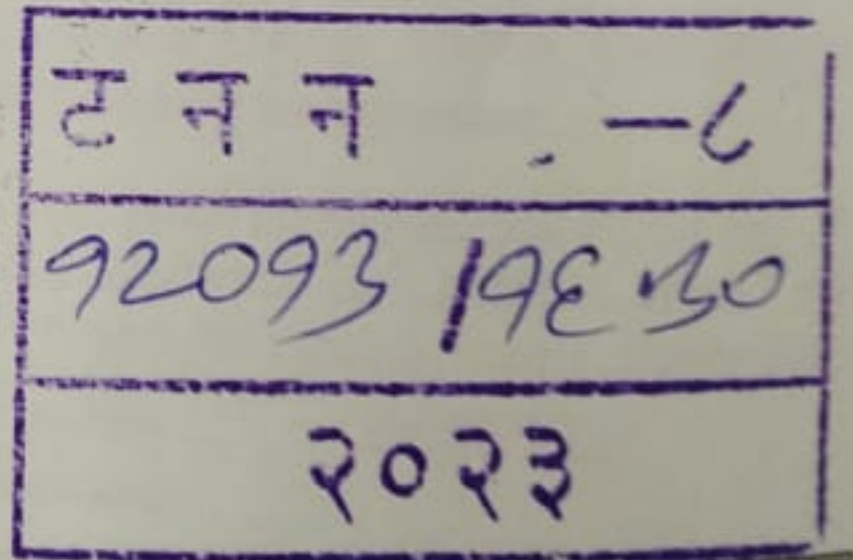 ट न न -८
१२०१३ / १६
२०२३